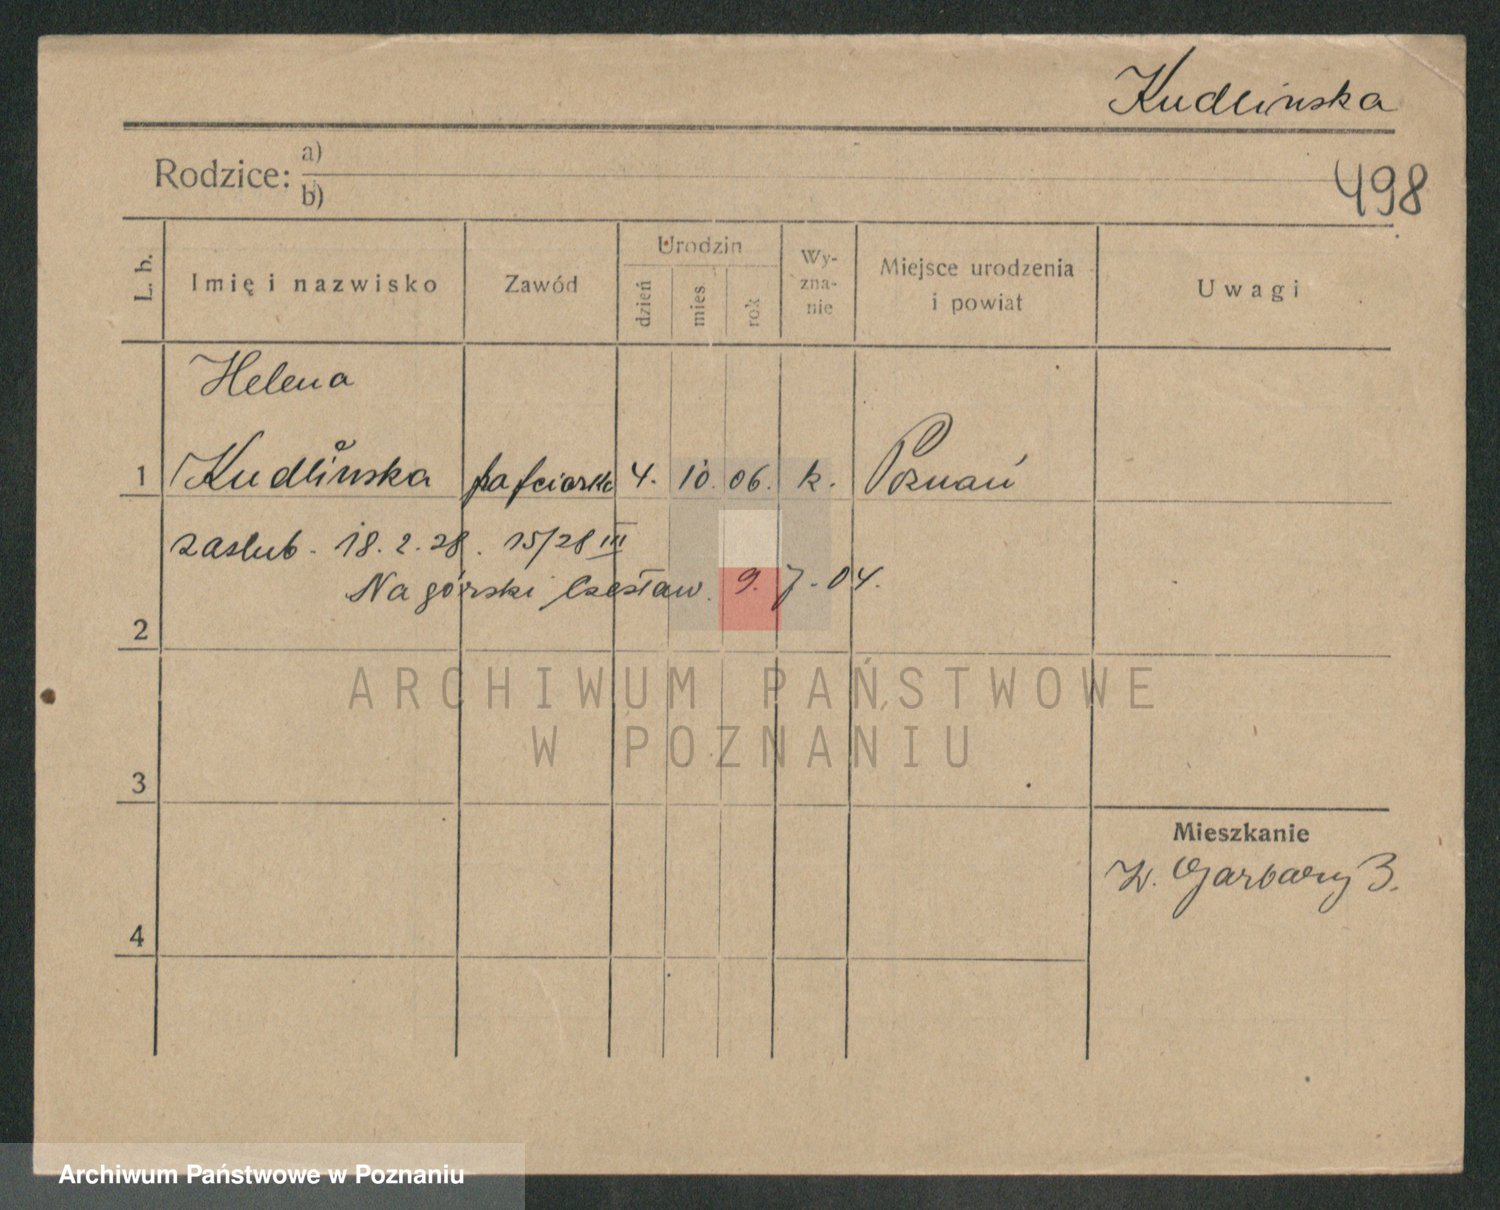 Kudlinska
Rodzice: a)
b)
498
L. b.
Imię i nazwisko
Zawód
Urodzin
dzień
mies
rok
Wy-
zna-
nie
Miejsce urodzenia
i powiat
Uwagi
Helena
1 Kudlińska hafciarka 4. 10. 06. k. Poznań
zaslub. 18.2.28. 15/28 III
Nagórski Czesław. 9. 7. 04.
2
ARCHIWUM PAŃSTWOWE
W POZNANIU
3
Mieszkanie
W. Garbary 3.
4
Archiwum Państwowe w Poznaniu